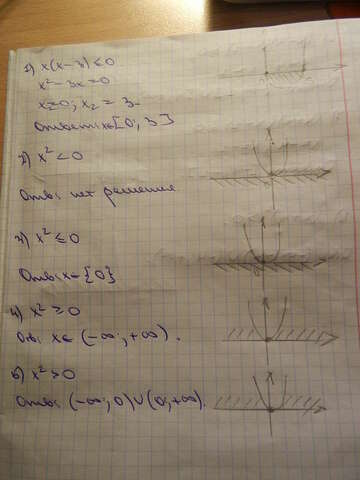 1) x(x-3) ≤ 0
x² - 3x = 0
x=0; x₂ = 3.
Ответ: x∈[0; 3]
2) x² < 0
Отв: нет решения
3) x² ≤ 0
Отв: x - {0}
4) x² ≥ 0
Отв: x∈ (-∞; +∞).
5) x² > 0
Отв: (-∞; 0)∪(0; +∞).